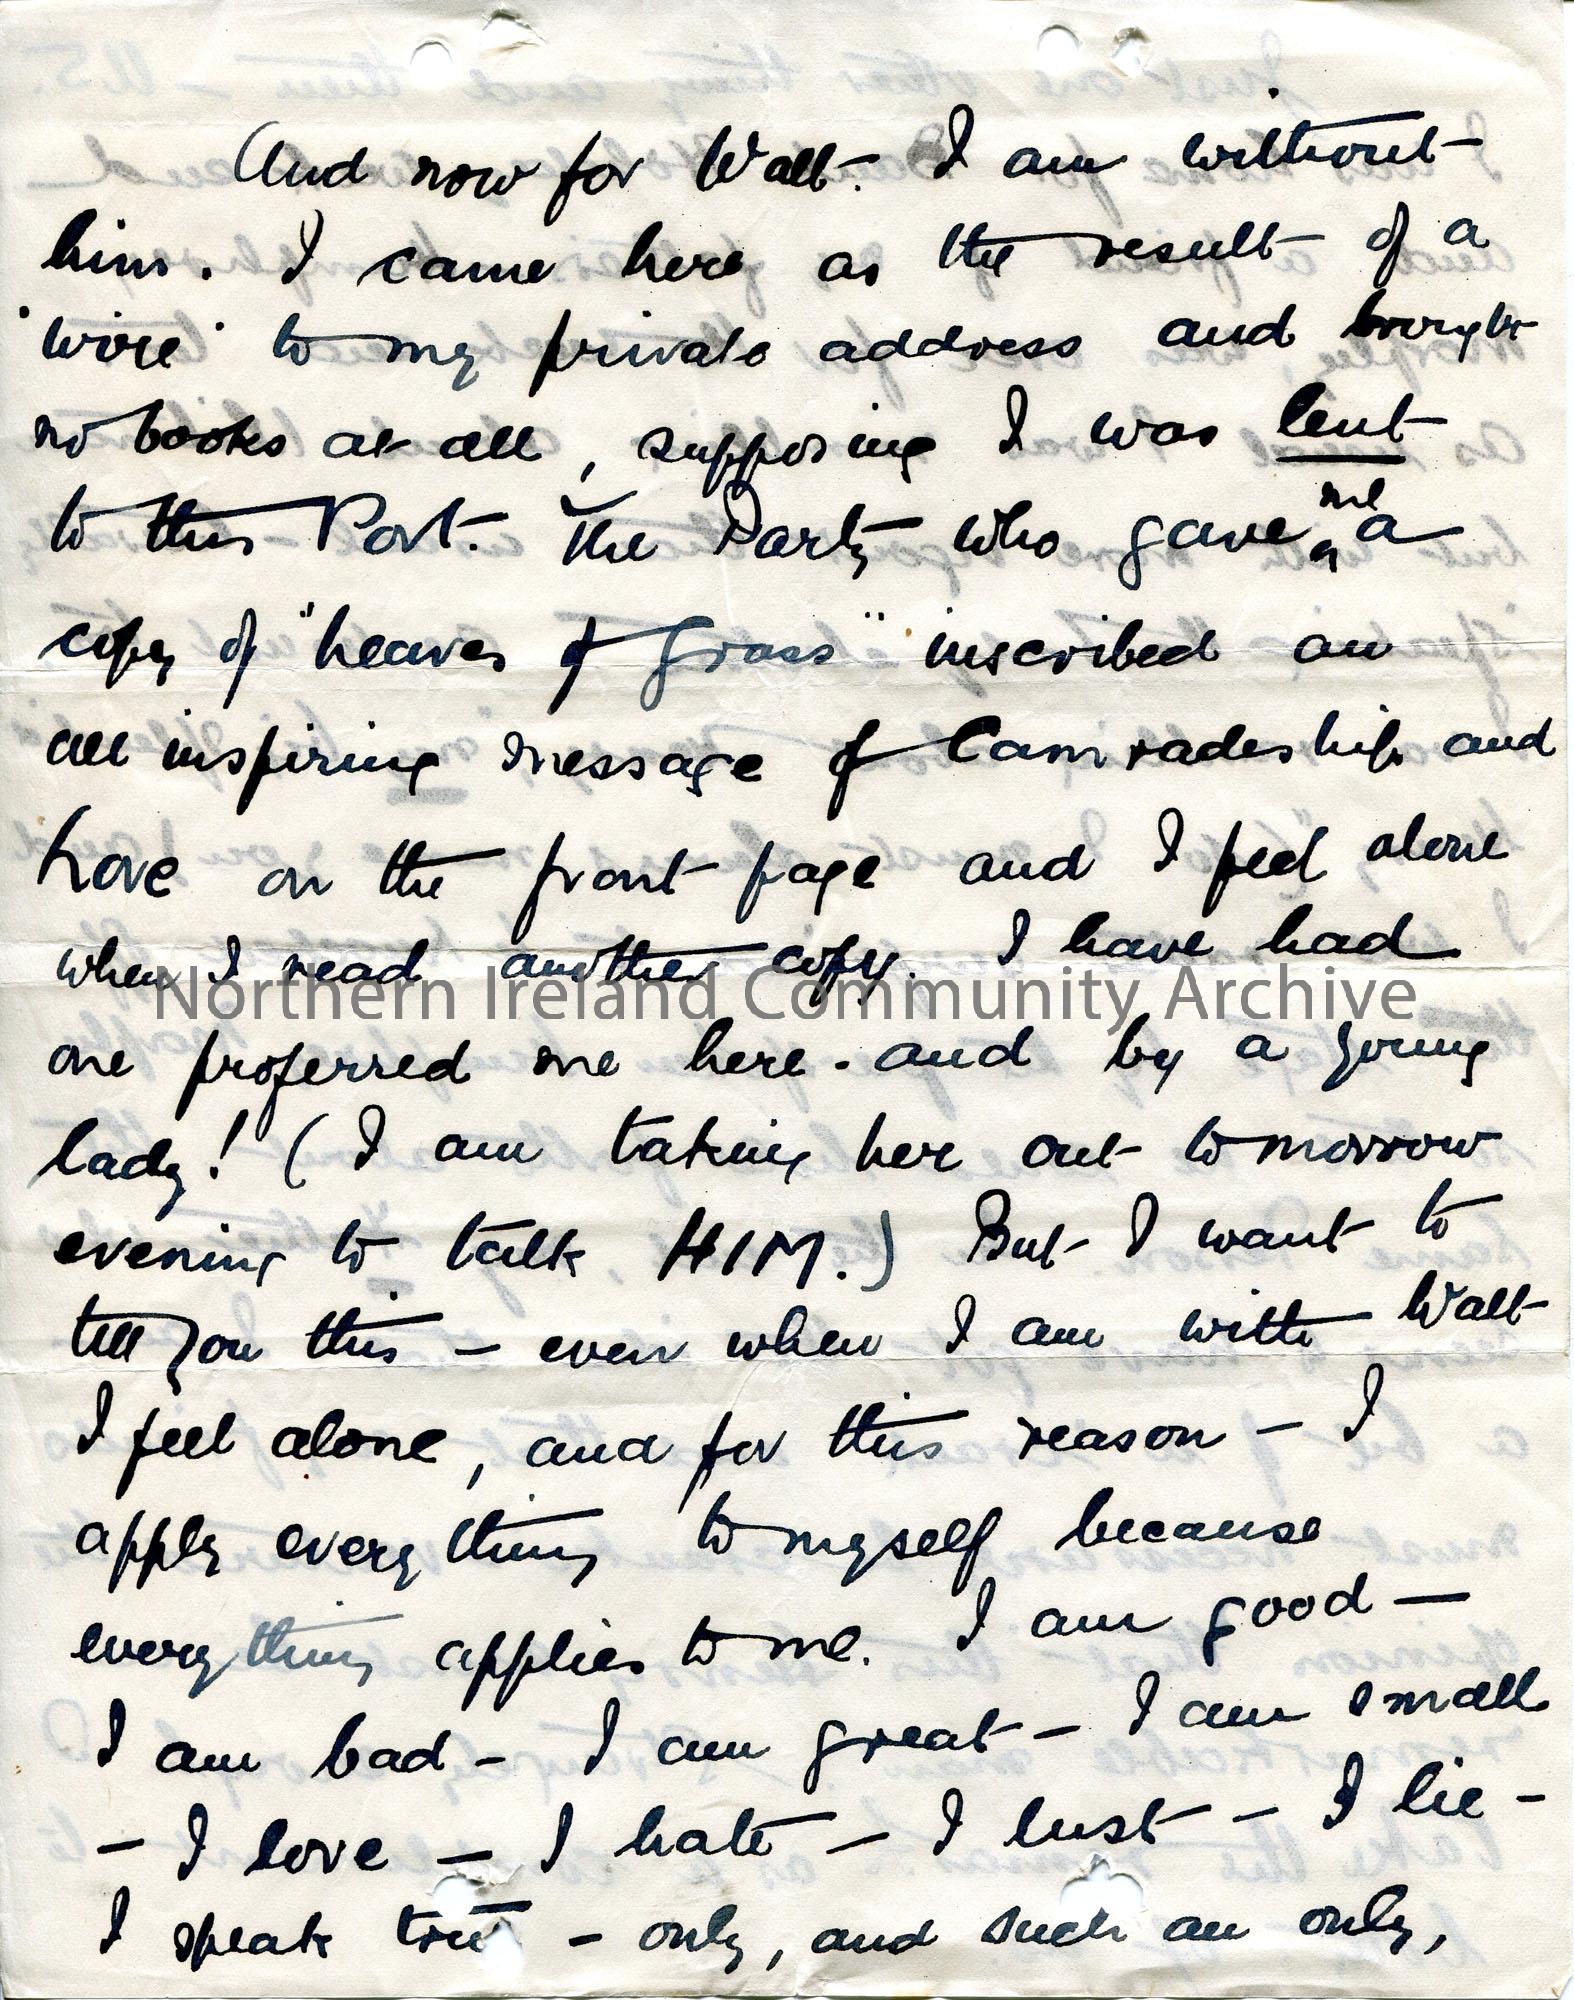 And now for Walt. I am without
him. I came here as the result of a
'wire' to my private address and brought
no books at all, supposing I was lent
to this Port. The Party who gave me a
copy of "Leaves of Grass" inscribed an
all inspiring message of Camradeship and
Love on the front page and I feel alone
when I read another copy. I have had
Northern Ireland Community Archive
one proferred me here - and by a young
lady! (I am taking her out tomorrow
evening to talk HIM.) But I want to
tell you this - even when I am with Walt
I feel alone, and for this reason - I
apply everything to myself because
everything applies to me. I am good -
I am bad - I am great - I am small
- I love - I hate - I lust - I lie -
I speak true - only, and such an only,